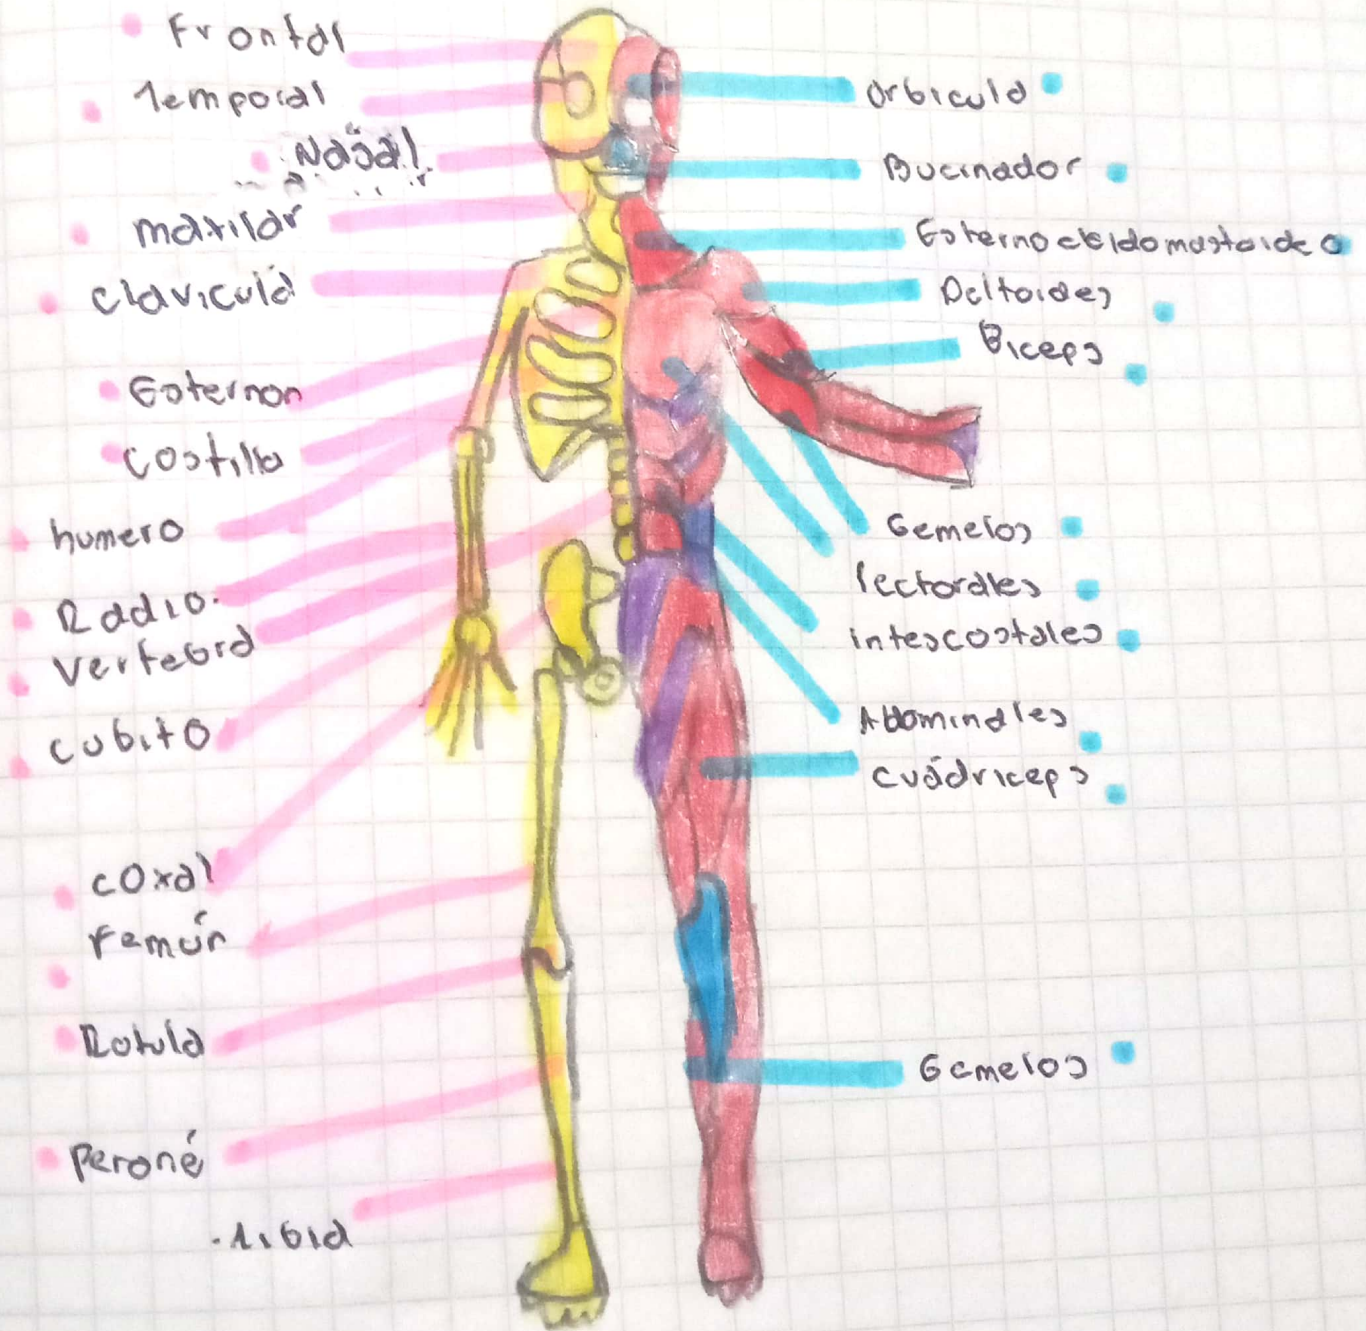 Frontal
Temporal
Nasal
maxilar
clavicula
Esternon
costilla
humero
Radio.
vertebra
cubito
coxal
Femúr
Rotula
Peroné
.Tibia
Orbiculo
Bucinador
Esternocleidomastoideo
Deltoides
Biceps
Gemelos
Pectorales
intescostales
Abominales
cuádriceps
Gemelos